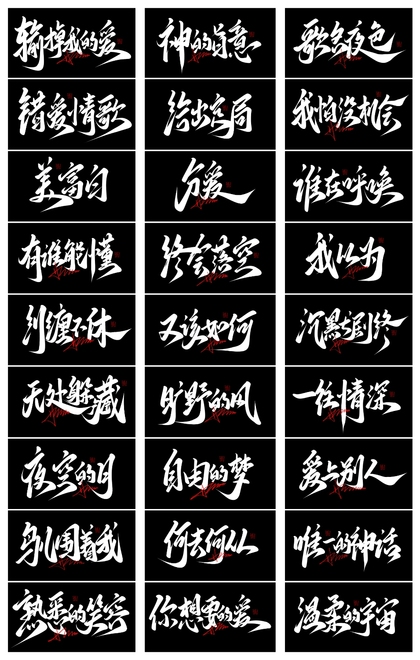 输掉我的爱
神的旨意
夜色
错爱情歌
给出
我怕没机会
谁在呼唤
有谁能懂
终会落空
我以为
纠缠不休
又该如何
沉默与剧终
无处躲藏
旷野的风
一往情深
夜空的月
自由的梦
爱上别人
围着我
何去何从
唯一的神话
熟悉的笑容
你想要的爱
温柔的宇宙